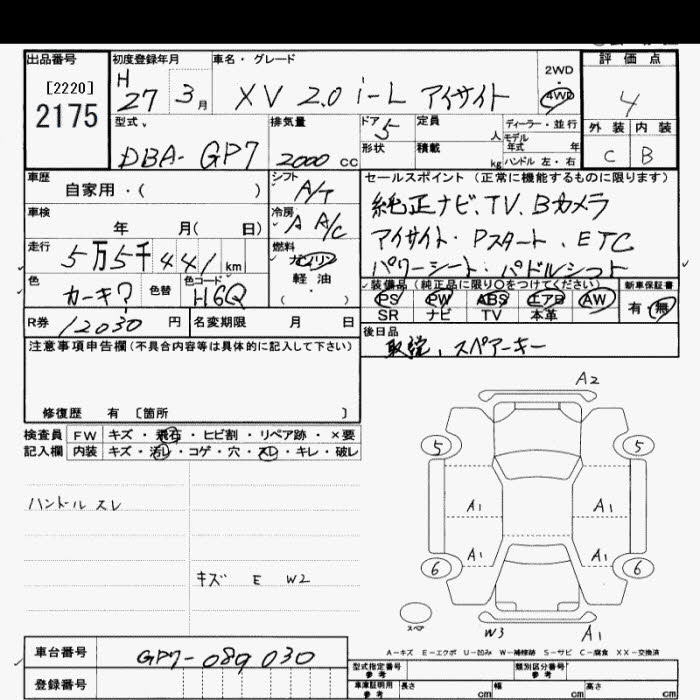 出品番号 初度登録年月 車名・グレード 2WD・4WD 評価点
[2220]
2175 H27 3月 XV 2.0 i-L アイサイト 4
型式 排気量 ドア 定員 人 ディーラー・並行 外装 内装
DBA-GP7 2000 cc 5 モデル年式 年
形状 積載 kg ハンドル 左・右 C B
車歴 シフト セールスポイント (正常に機能するものに限ります)
自家用・( ) A/T 純正ナビ、TV、Bカメラ
車検 冷房
年 月( 日) A A/C アイサイト・Pスタート、ETC
走行 燃料
5万5千441km ガソリン パワーシート・パドルシフト
軽油
( )
色 色替 色コード 装備品 (純正品に限り○をつけてください) 新車保証書
カーキ? H6Q PS PW ABS エアB AW 有・無
SR ナビ TV 本革
R券 12030円 名変期限 月 日 後日品
注意事項申告欄(不具合内容等は具体的に記入して下さい) 取説、スペアーキー
修復歴 有 〔箇所 〕
A2
検査員 FW キズ・飛石・ヒビ割・リペア跡・×要
記入欄 内装 キズ・汚レ・コゲ・穴・スレ・キレ・破レ
5 5
ハンドル スレ
A1 A1
A1 A1
6 6
キズ E W2
スペア
W3 A1
A-キズ E-エクボ U-凹み W-補修跡 S-サビ C-腐食 XX-交換済
車台番号 GP7-089030
型式指定番号 参考 類別区分番号 参考
登録番号
車庫証明用 参考 長さ cm 幅 cm 高さ cm